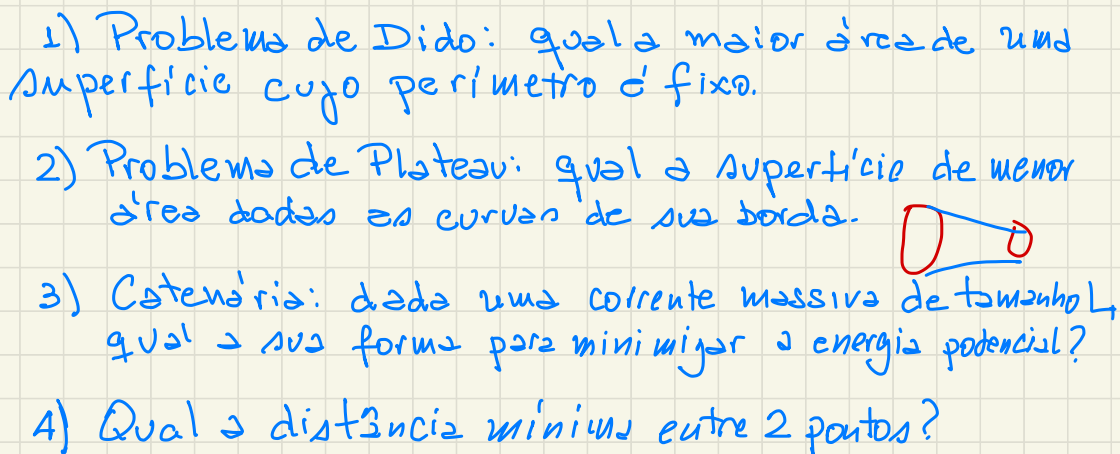 1) Problema de Dido: qual a maior área de uma
superfície cujo perímetro é fixo.
2) Problema de Plateau: qual a superfície de menor
área dadas as curvas de sua borda.
3) Catenária: dada uma corrente massiva de tamanho L,
qual a sua forma para minimizar a energia podencial?
4) Qual a distância mínima entre 2 pontos?